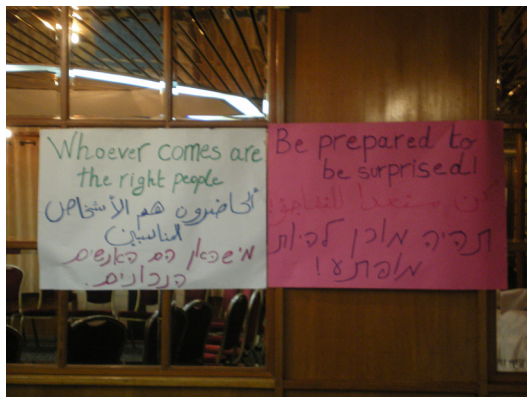 Whoever comes are
the right people
الحاضرون هم الأشخاص
المناسبين
מי שכאן הם האנשים
הנכונים.
Be prepared to
be surprised!
كن مستعدا للتفاجؤ!
תהיה מוכן להיות
מופתע!